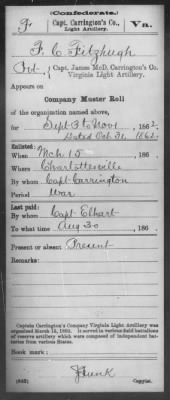 (Confederate.)
F Capt. Carrington's Co., Va.
Light Artillery.
F. C. Fitzhugh
Pvt, Capt. James McD. Carrington's Co.
Virginia Light Artillery.
Appears on
Company Muster Roll
of the organization named above,
for Sept & Oct 1862.
dated Oct 31, 1862
Enlisted:
When Mch 15, 186
Where Charlottesville
By whom Capt Carrington
Period War
Last paid:
By whom Capt Elhart
To what time Aug 30, 186
Present or absent Present
Captain Carrington's Company Virginia Light Artillery was
organized March 15, 1862. It served in various field battalions
of reserve artillery which were composed of independent bat-
teries from various States.
Book mark:
(642) Copyist.